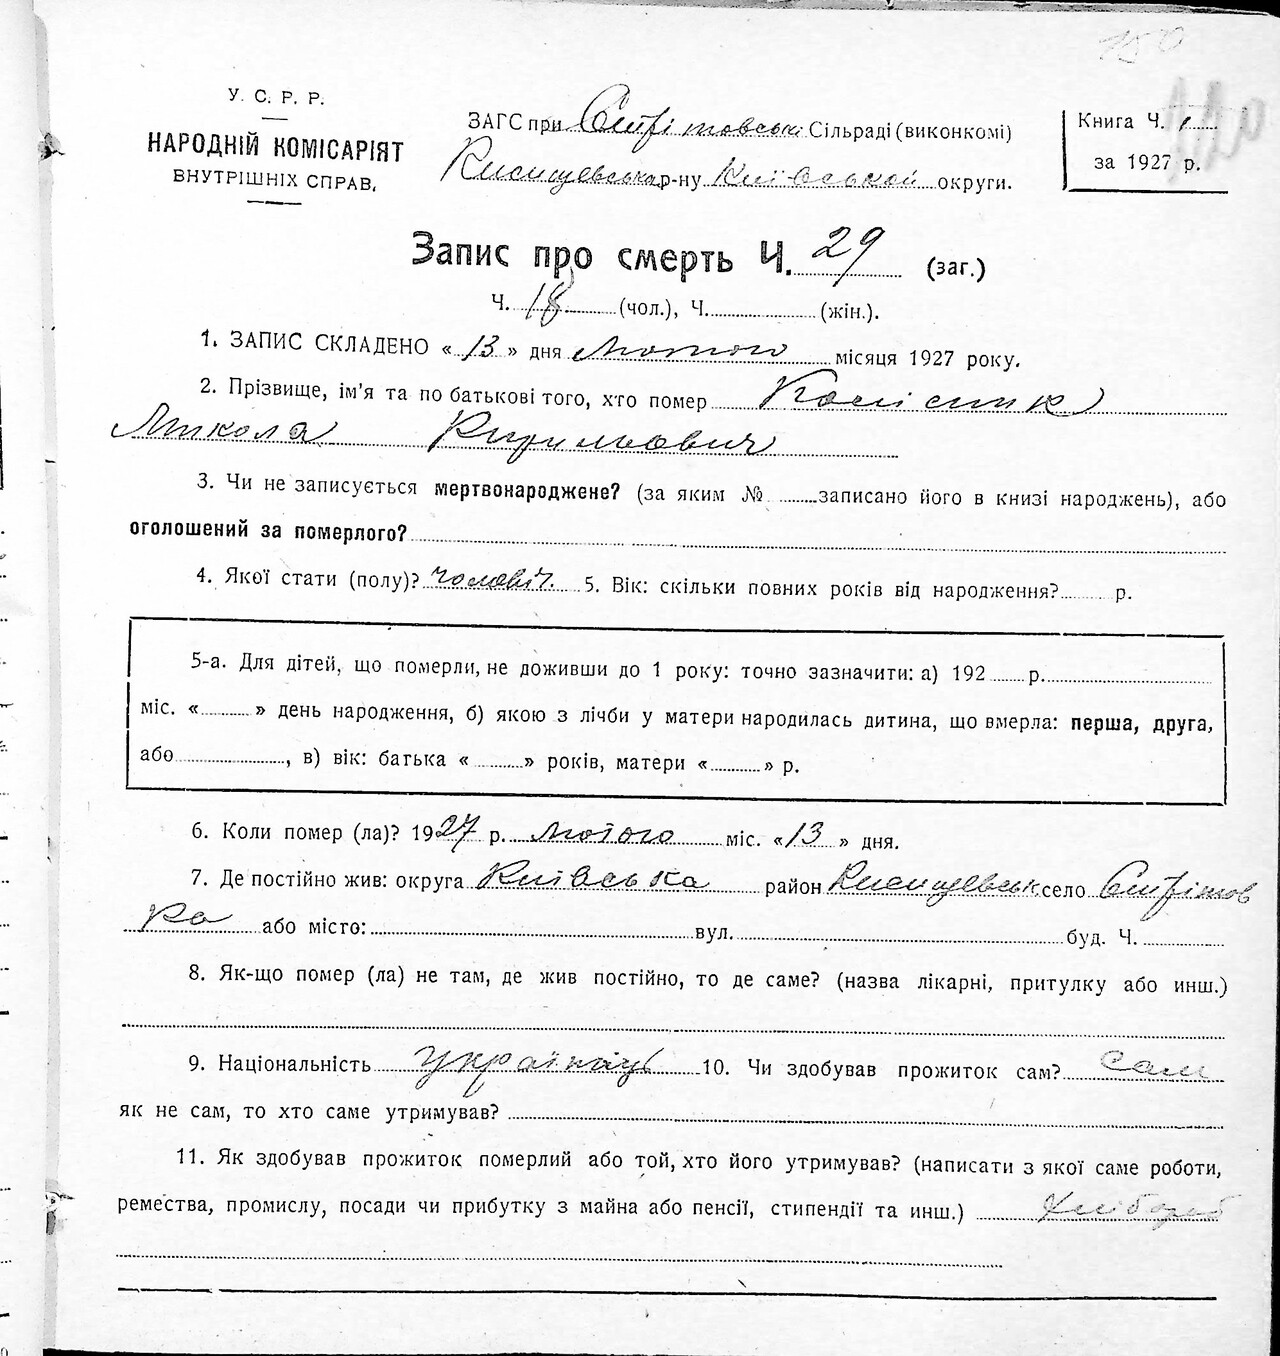 150
У. С. Р. Р.
НАРОДНІЙ КОМІСАРІЯТ
ВНУТРІШНІХ СПРАВ.
ЗАГС при Сипітовські Сільраді (виконкомі)
р-ну Київської округи.
Книга Ч. 1
за 1927 р.
Запис про смерть Ч. 29 (заг.)
Ч. 18 (чол.), Ч. (жін.).
1. ЗАПИС СКЛАДЕНО « 13 » дня Лютого місяця 1927 року.
2. Прізвище, ім'я та по батькові того, хто помер Колісник
Микола Кирилович
3. Чи не записується мертвонароджене? (за яким № записано його в книзі народжень), або
оголошений за померлого?
4. Якої стати (полу)? чоловіч. 5. Вік: скільки повних років від народження? р.
5-а. Для дітей, що померли, не доживши до 1 року: точно зазначити: а) 192 р.
міс. « » день народження, б) якою з лічби у матери народилась дитина, що вмерла: перша, друга,
або , в) вік: батька « » років, матери « » р.
6. Коли помер (ла)? 1927 р. лютого міс. « 13 » дня.
7. Де постійно жив: округа Київська район село
або місто: вул. буд. Ч.
8. Як-що помер (ла) не там, де жив постійно, то де саме? (назва лікарні, притулку або инш.)
9. Національність українець 10. Чи здобував прожиток сам? Сам
як не сам, то хто саме утримував?
11. Як здобував прожиток померлий або той, хто його утримував? (написати з якої саме роботи,
ремества, промислу, посади чи прибутку з майна або пенсії, стипендії та инш.) Хлібороб